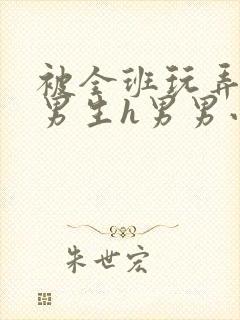 被全班玩弄
男生h男男小
朱世宏